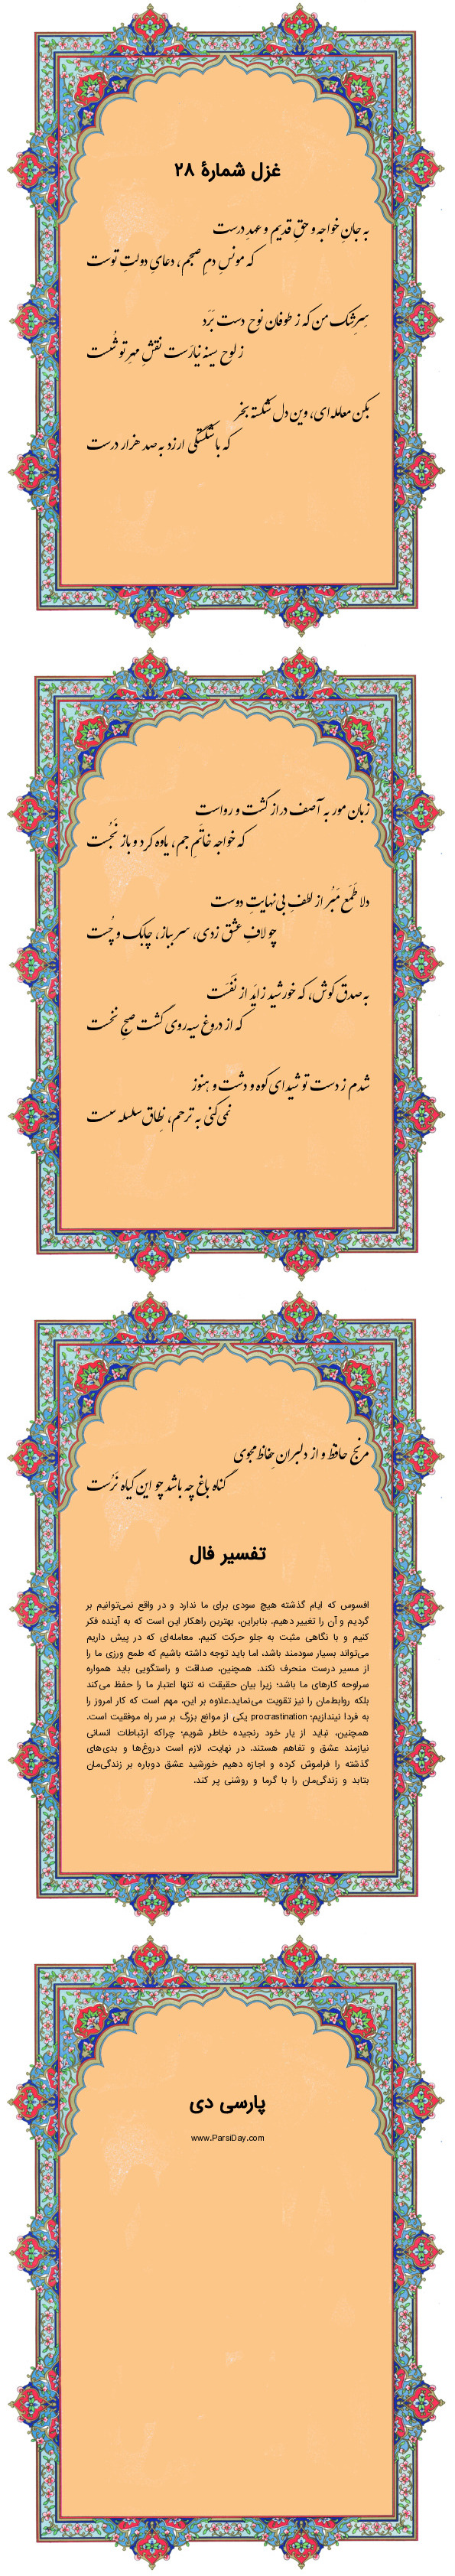 غزل شمارهٔ ۲۸
به جانِ خواجه و حقِ قدیم و عهدِ درست
که مونسِ دمِ صبحم، دعایِ دولتِ توست
سِرِشک من که ز طوفان نوح دست بَرَد
ز لوح سینه نیارَست نقشِ مهرِ تو شُست
بکن معامله‌ای، وین دل شکسته بخر
که با شکستگی ارزد به صد هزار درست
زبان مور به آصف دراز گشت و رواست
که خواجه خاتَمِ جم، یاوه کرد و باز نَجُست
دلا طَمَع مَبُر از لطفِ بی‌نهایتِ دوست
چو لافِ عشق زدی، سر بباز، چابک و چُست
به صدق کوش، که خورشید زاید از نَفَست
که از دروغ سیه‌روی گشت صبحِ نخست
شدم ز دست تو شیدای کوه و دشت و هنوز
نمی‌کنی به ترحم، نِطاق سلسله سست
مرنج حافظ و از دلبران حِفاظ مجوی
گناه باغ چه باشد چو این گیاه نَرُست
تفسیر فال
افسوس که ایام گذشته هیچ سودی برای ما ندارد و در واقع نمی‌توانیم بر
گردیم و آن را تغییر دهیم. بنابراین، بهترین راهکار این است که به آینده فکر
کنیم و با نگاهی مثبت به جلو حرکت کنیم. معامله‌ای که در پیش داریم
می‌تواند بسیار سودمند باشد، اما باید توجه داشته باشیم که طمع ورزی ما را
از مسیر درست منحرف نکند. همچنین، صداقت و راستگویی باید همواره
سرلوحه کارهای ما باشد؛ زیرا بیان حقیقت نه تنها اعتبار ما را حفظ می‌کند
بلکه روابط‌مان را نیز تقویت می‌نماید.علاوه بر این، مهم است که کار امروز را
به فردا نیندازیم؛ procrastination یکی از موانع بزرگ بر سر راه موفقیت است.
همچنین، نباید از یار خود رنجیده خاطر شویم؛ چراکه ارتباطات انسانی
نیازمند عشق و تفاهم هستند. در نهایت، لازم است دروغ‌ها و بدی‌های
گذشته را فراموش کرده و اجازه دهیم خورشید عشق دوباره بر زندگی‌مان
بتابد و زندگی‌مان را با گرما و روشنی پر کند.
پارسی دی
www.ParsiDay.com